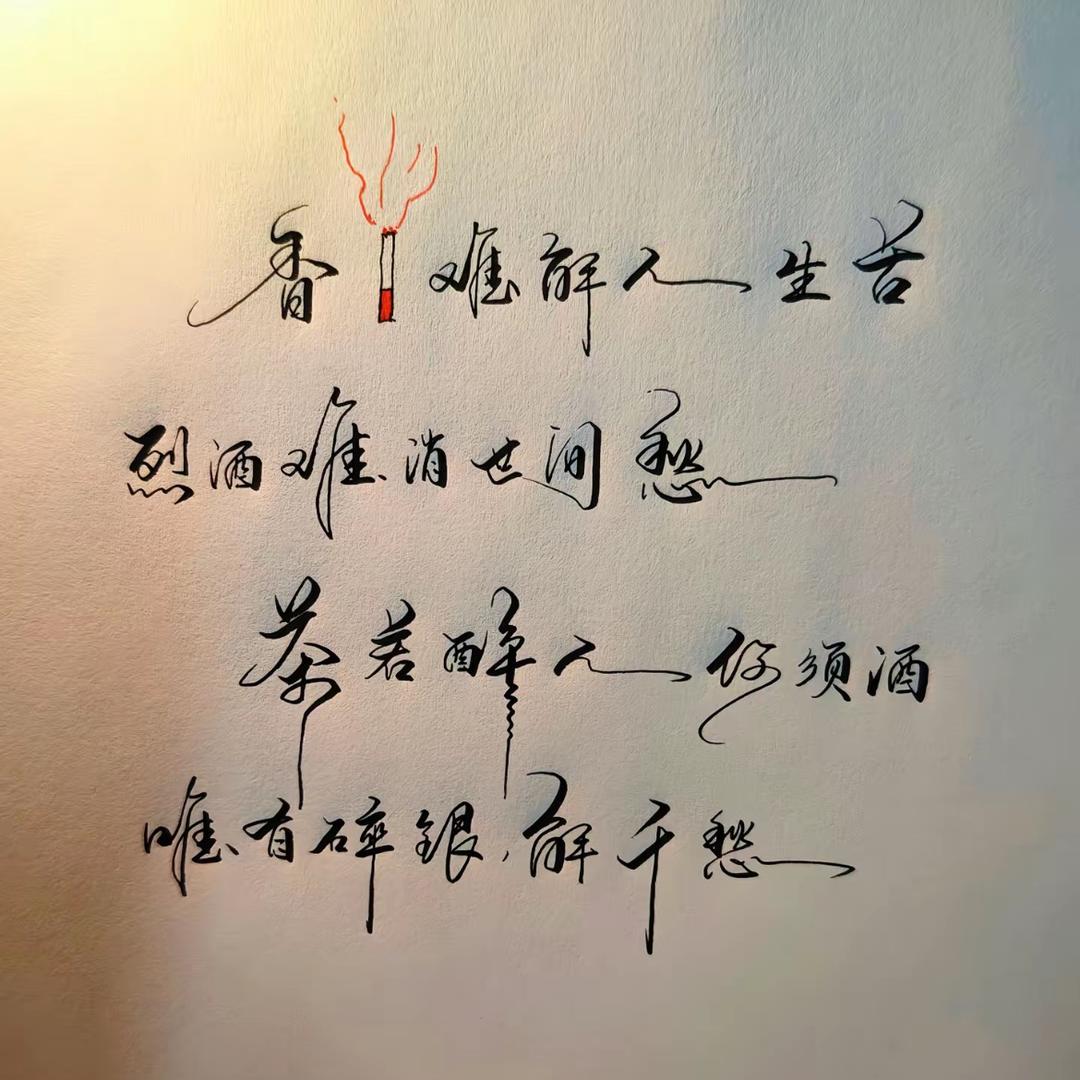 香难解人生苦
烈酒难消世间愁
茶若醉人你须酒
唯有碎銀,解千愁